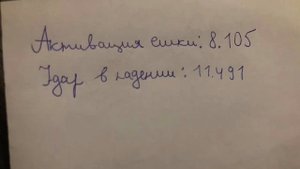 Активация ешки: 8.105
Удар в падении: 11.491